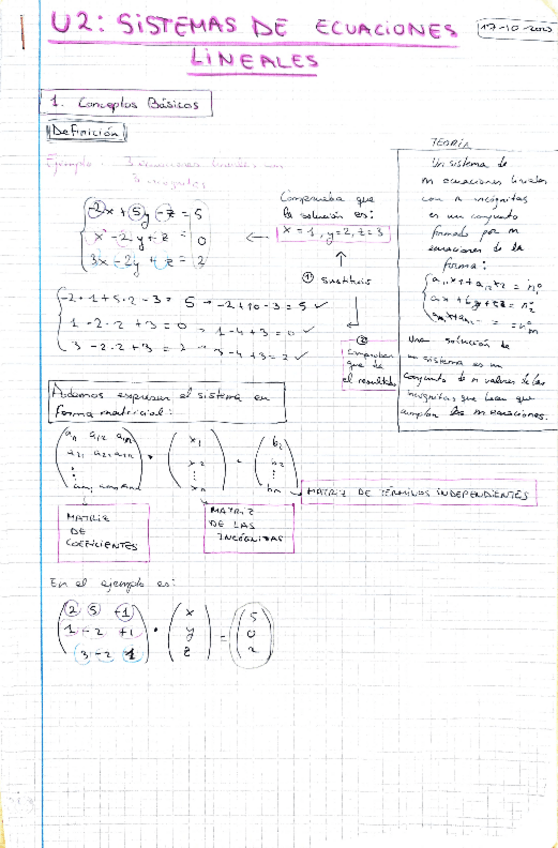 U2: SISTEMAS DE ECUACIONES
LINEALES
1. Conceptos Básicos
Definición
Ejemplo: 3 ecuaciones lineales con
3 incógnitas
-2x+5y-z=5
x-2y+z=0
3x-2y+z=2
Comprueba que
la solución es:
x=1, y=2, z=3
① Sustituir
-2·1+5·2-3=5 → -2+10-3=5 ✓
1-2·2+3=0 → 1-4+3=0 ✓
3-2·2+3=2 → 3-4+3=2 ✓
②
Comprobar
que da
el resultado
TEORÍA
Un sistema de
m ecuaciones lineales
con n incógnitas
es un conjunto
formado por m
ecuaciones de la
forma:
Una solución de
un sistema es un
conjunto de n valores de las
incógnitas que hacen que
cumplan las m ecuaciones.
Podemos expresar el sistema en
forma matricial:
MATRIZ DE TÉRMINOS INDEPENDIENTES
MATRIZ
DE
COEFICIENTES
MATRIZ
DE LAS
INCÓGNITAS
En el ejemplo es:
2 5 +1 x 5
1 -2 +1 · y = 0
3 -2 1 z 2